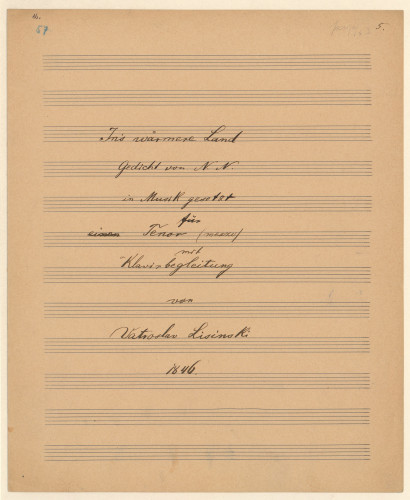 16.
59
5.
In's wärmere Land
Gedicht von N. N.
in Musik gesetzt
für
einen Tenor
mit
Klavierbegleitung
von
Vatroslav Lisinski
1846.